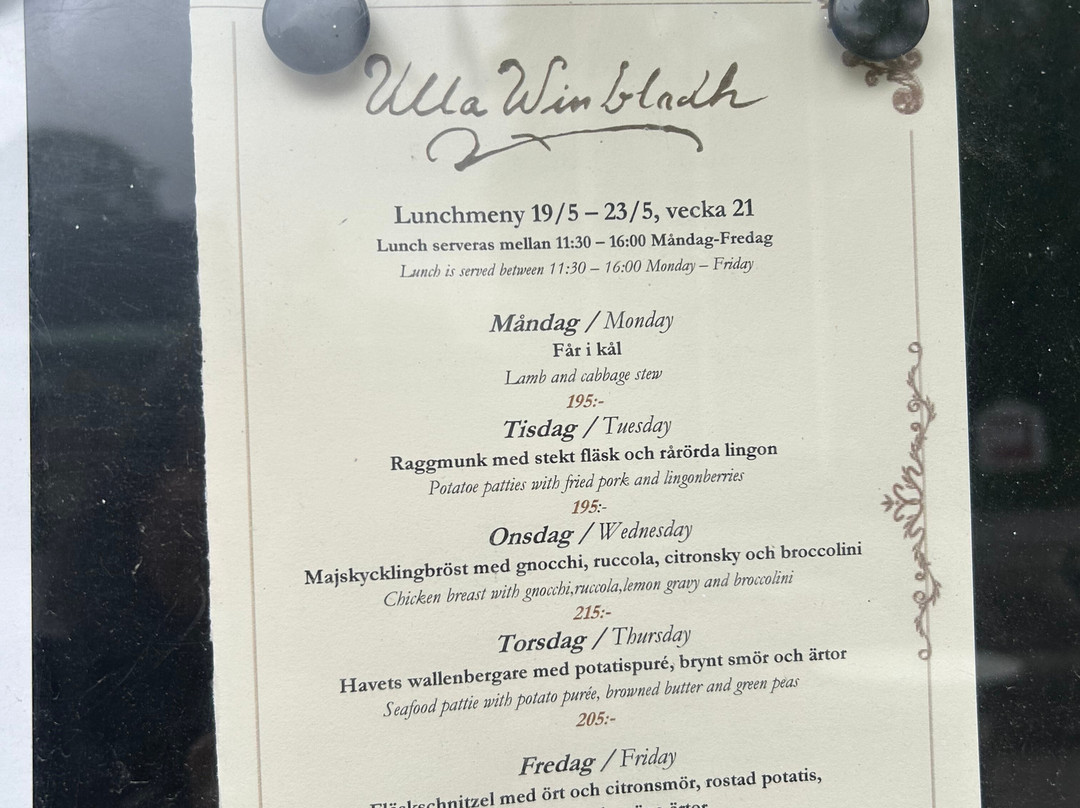 Ulla Winbladh
Lunchmeny 19/5 – 23/5, vecka 21
Lunch serveras mellan 11:30 – 16:00 Måndag-Fredag
Lunch is served between 11:30 – 16:00 Monday – Friday
Måndag / Monday
Får i kål
Lamb and cabbage stew
195:-
Tisdag / Tuesday
Raggmunk med stekt fläsk och rårörda lingon
Potatoe patties with fried pork and lingonberries
195:-
Onsdag / Wednesday
Majskycklingbröst med gnocchi, ruccola, citronsky och broccolini
Chicken breast with gnocchi,ruccola,lemon gravy and broccolini
215:-
Torsdag / Thursday
Havets wallenbergare med potatispuré, brynt smör och ärtor
Seafood pattie with potato purée, browned butter and green peas
205:-
Fredag / Friday
Fläskschnitzel med ört och citronsmör, rostad potatis,